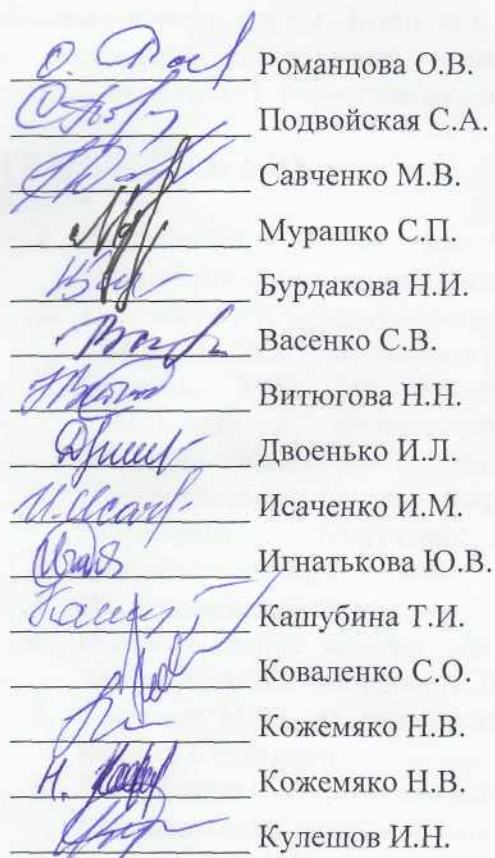 Романцова О.В.
Подвойская С.А.
Савченко М.В.
Мурашко С.П.
Бурдакова Н.И.
Васенко С.В.
Витюгова Н.Н.
Двоенько И.Л.
Исаченко И.М.
Игнатькова Ю.В.
Кашубина Т.И.
Коваленко С.О.
Кожемяко Н.В.
Кожемяко Н.В.
Кулешов И.Н.